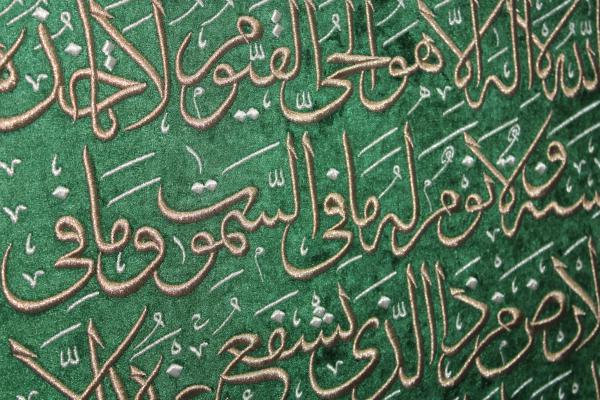 الله لا اله الا هو الحي القيوم لا تاخذه
سنة ولا نوم له ما في السموت وما في
الارض من ذا الذي يشفع عنده الا